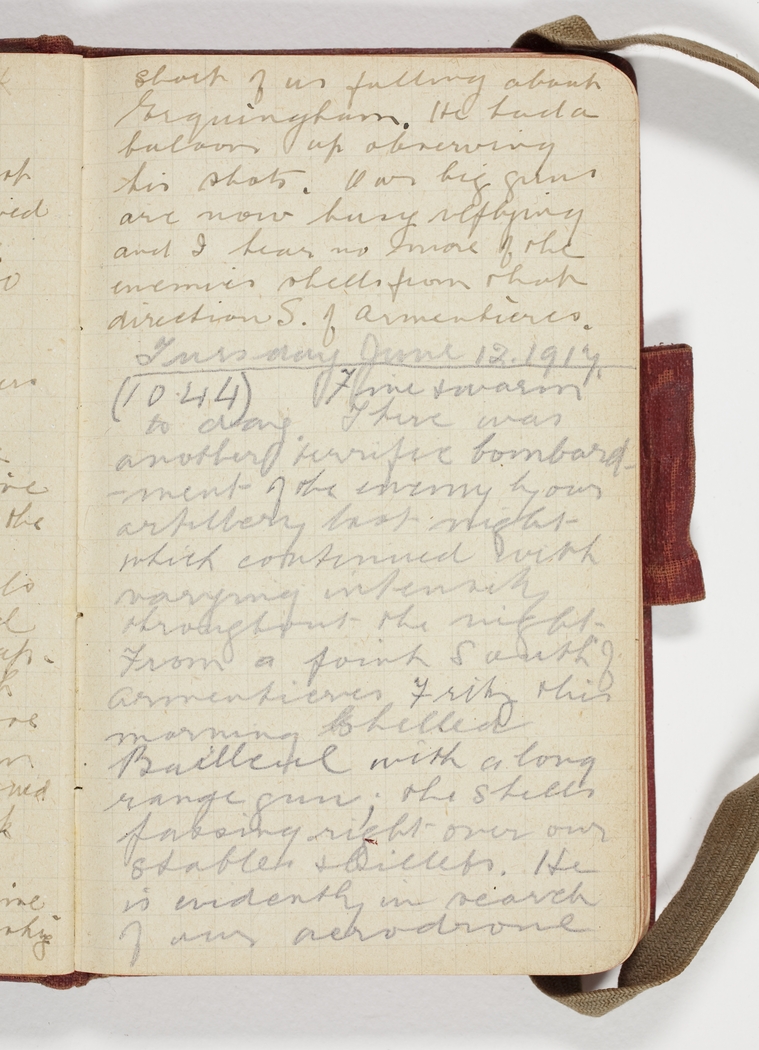 short of us falling about
Erquingham. He had a
baloon up observing
his shots. Our big guns
are now busy replying
and I hear no more of the
enemies shells from that
direction S. of Armentieres.
Tuesday June 12. 1917.
(1044) Fine & warm
to day. There was
another terrific bombard-
-ment of the enemy by our
artillery last night
which continued with
varying intensity
throughout the night.
From a point South of
Armentieres Fritz this
morning shelled
Bailleul with a long
range gun; the shells
passing right over our
stables & billets. He
is evidently in search
of our aerodrone